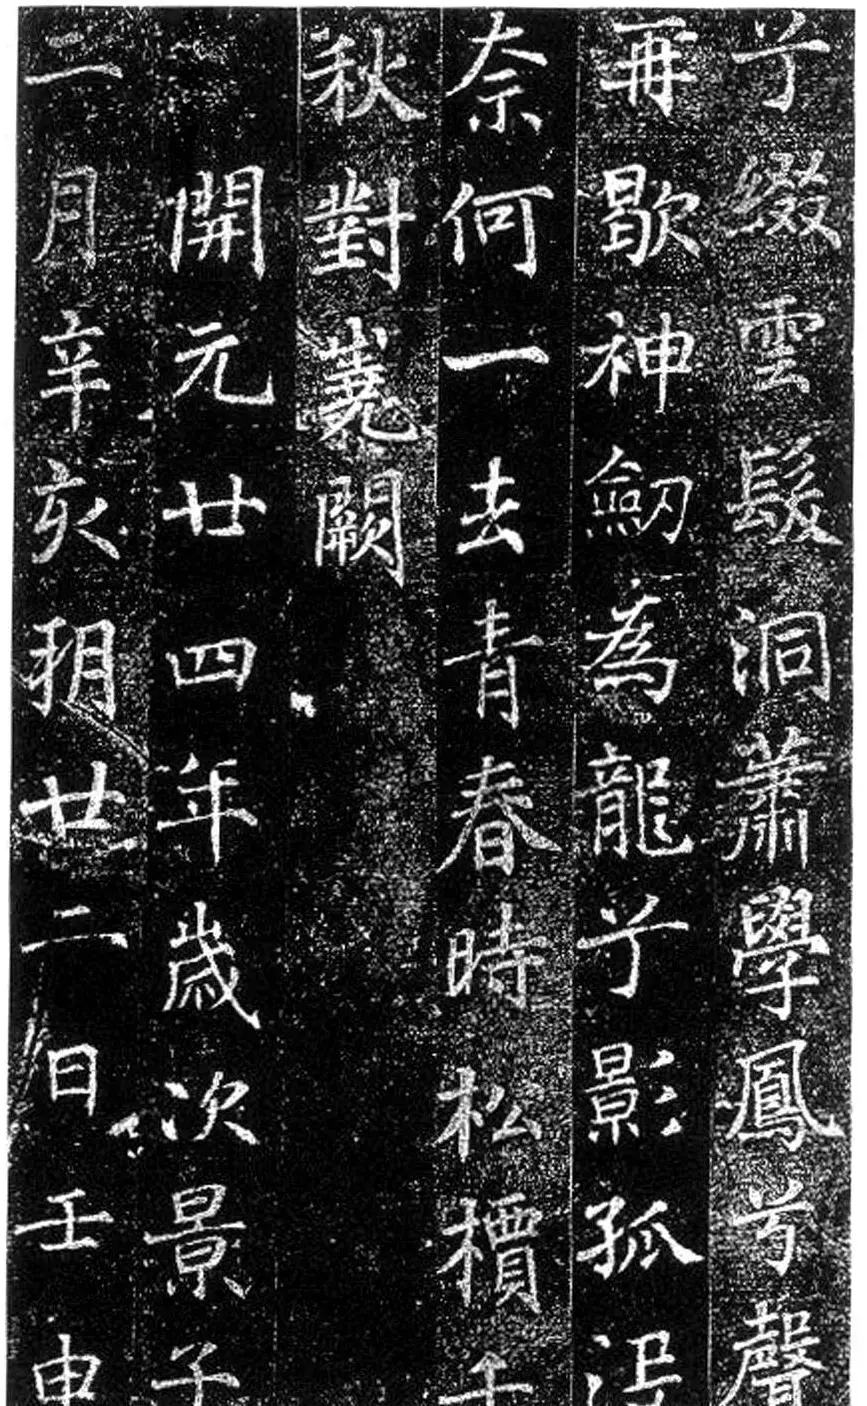 兮綴雲髮洞蕭學鳳兮聲
再歇神劒為龍兮影孤沒
奈何一去青春時松檟千
秋對嶤闕
開元廿四年歲次景子
二月辛亥朔廿二日壬申